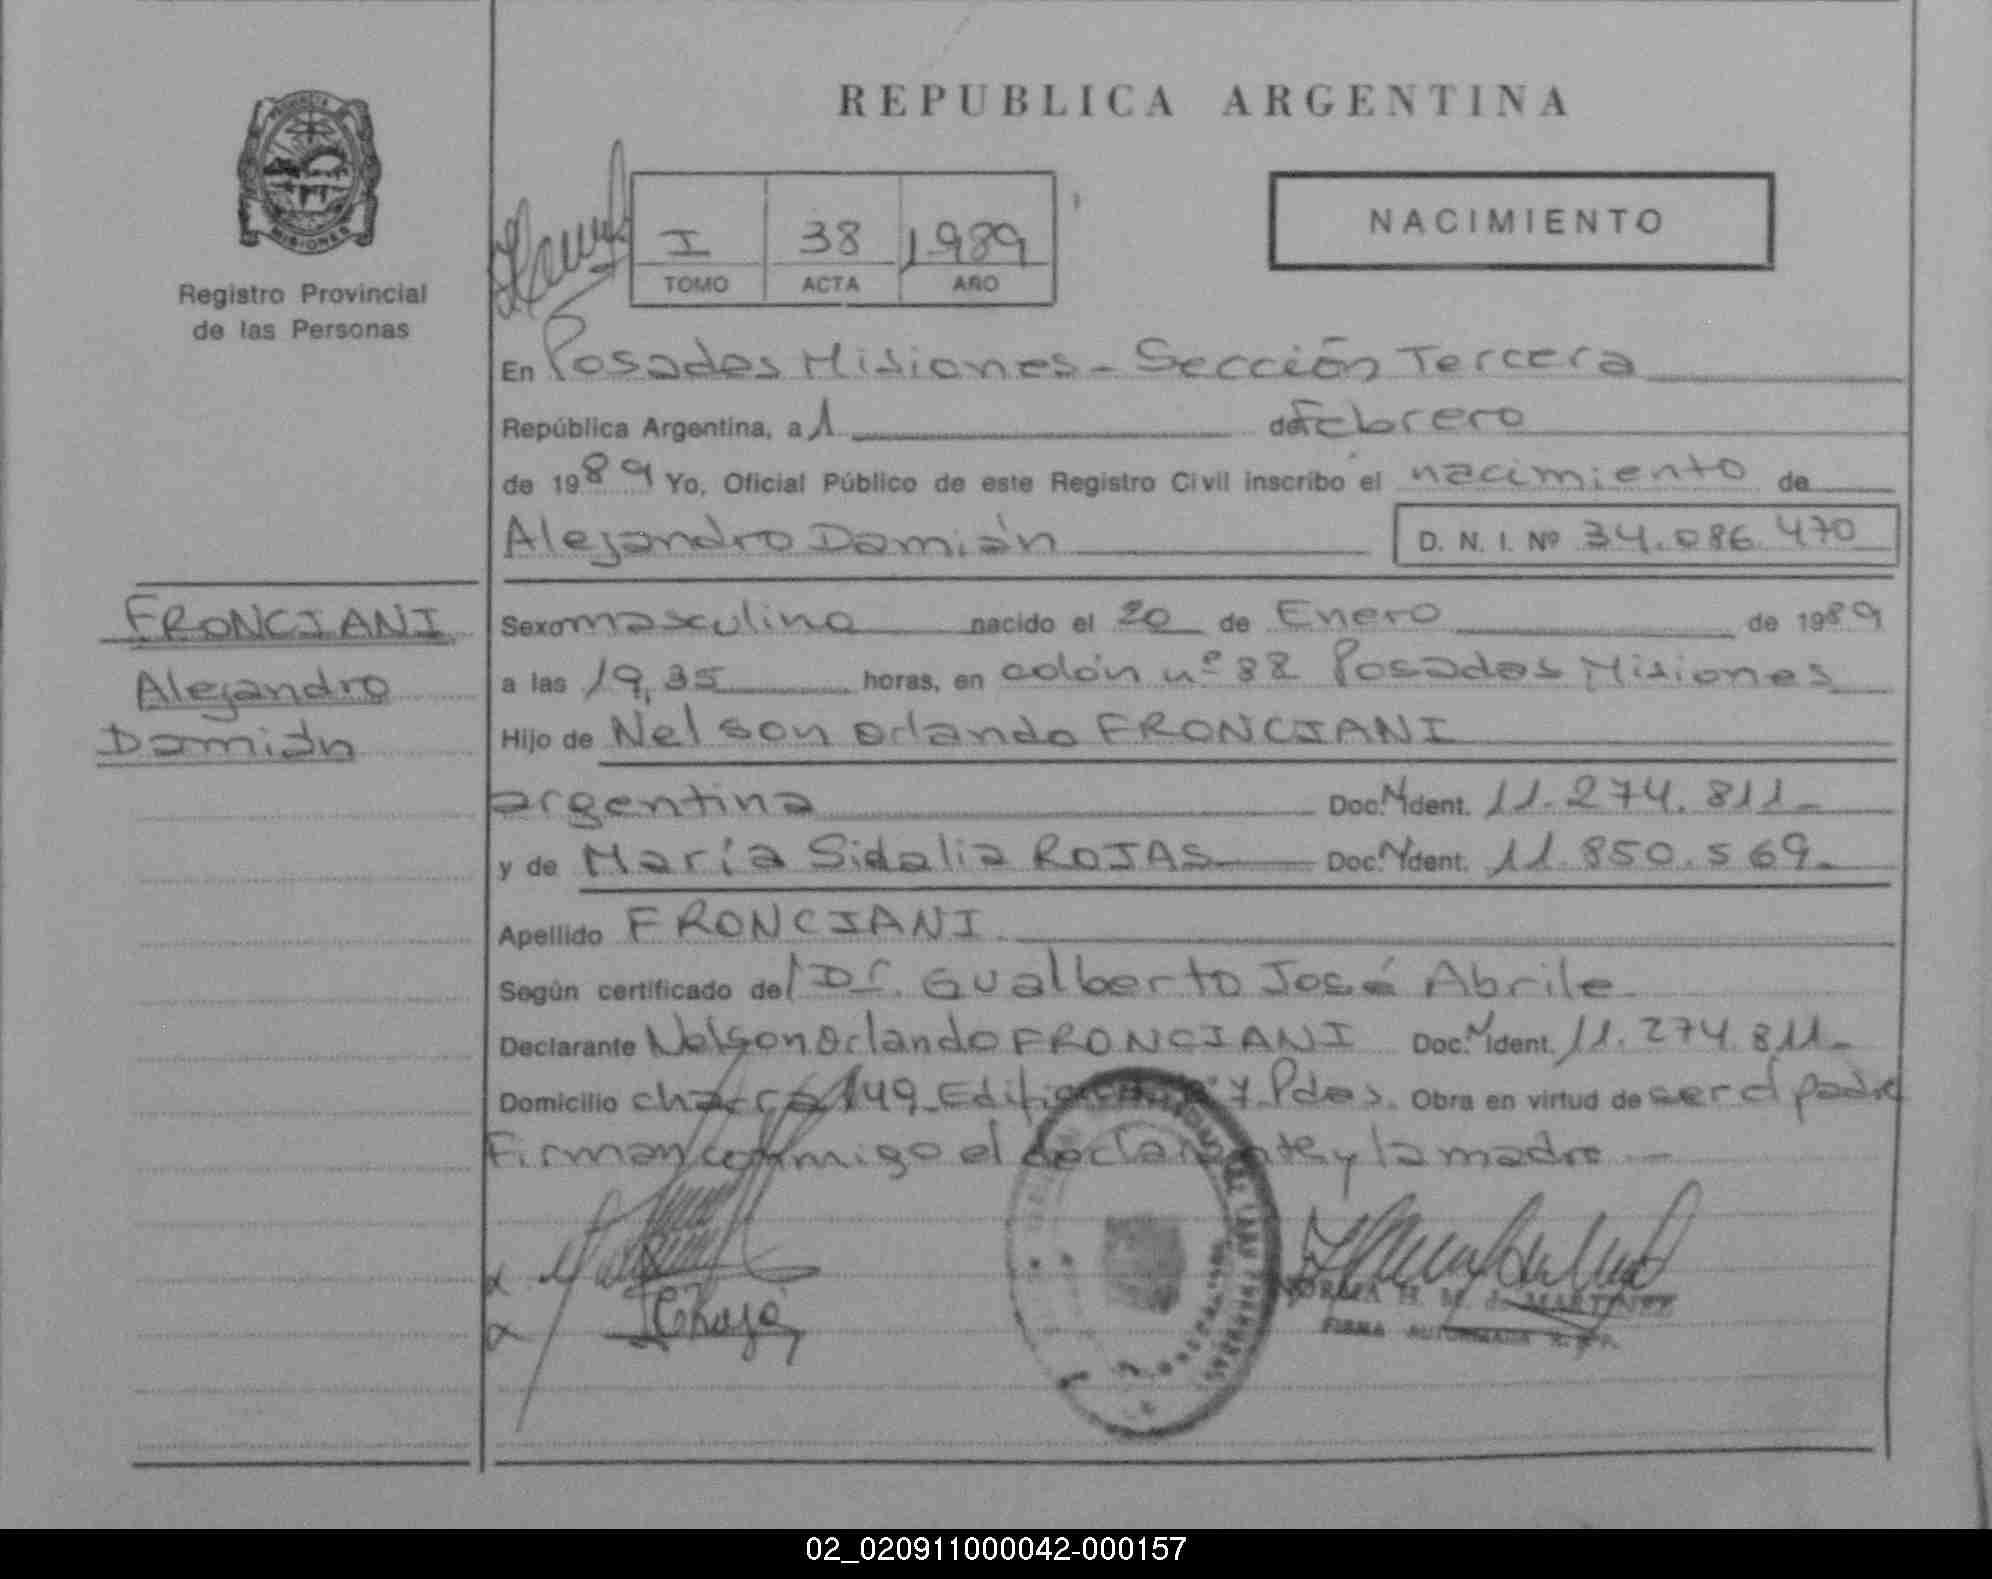 REPUBLICA ARGENTINA
NACIMIENTO
PROVINCIA
MISIONES
Registro Provincial
de las Personas
I 38 1989
TOMO ACTA AÑO
En Posadas Misiones - Sección Tercera
República Argentina, a 1 de Febrero
de 1989 Yo, Oficial Público de este Registro Civil inscribo el nacimiento de
Alejandro Damián D. N. I. Nº 34.086.470
FRONCIANI
Alejandro
Damián
Sexo masculino nacido el 20 de Enero de 1989
a las 19,35 horas, en colón nº 88 Posadas Misiones
Hijo de Nelson Orlando FRONCIANI
argentina Doc. Ident. 11.274.811-
y de María Sidalia ROJAS Doc. Ident. 11.850.569-
Apellido FRONCIANI
Según certificado del Dr. Gualberto José Abrile
Declarante Nelson Orlando FRONCIANI Doc. Ident. 11.274.811-
Domicilio chacra 149 7 Pdas. Obra en virtud de ser el padre
Firman conmigo el declarante y la madre -
NORMA H. M. de MARTINEZ
FIRMA AUTORIZADA
02_020911000042-000157